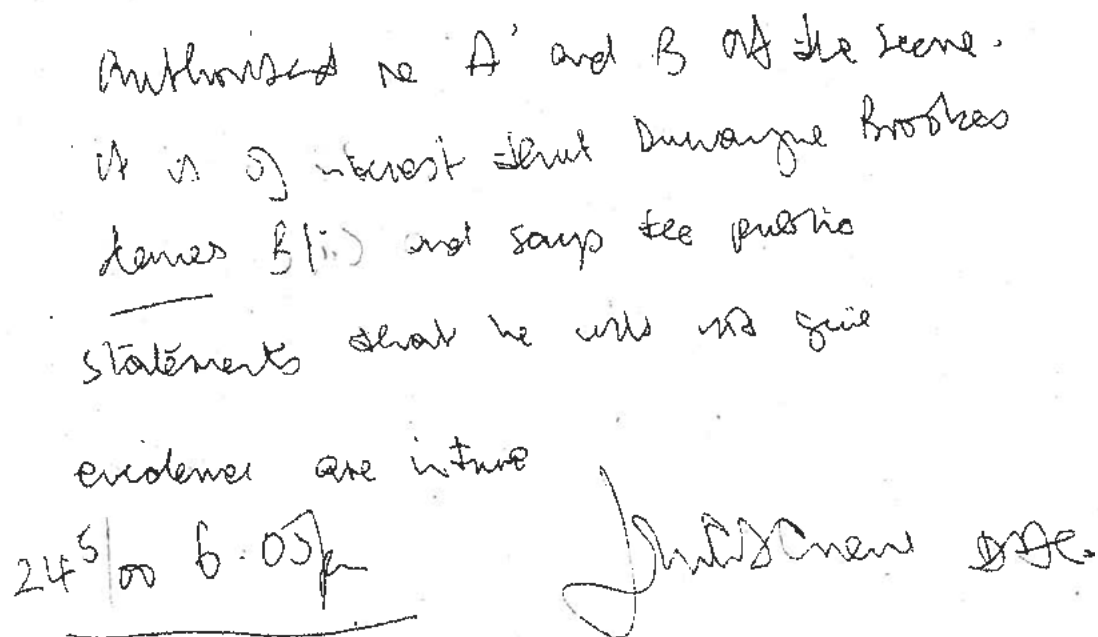 Authorised re A' and B of the scene.
it is of interest that Duwayne Brookes
denies B(i) and says the public
statements that he will not give
evidence are untrue
24/5/00 6.05pm DAC.